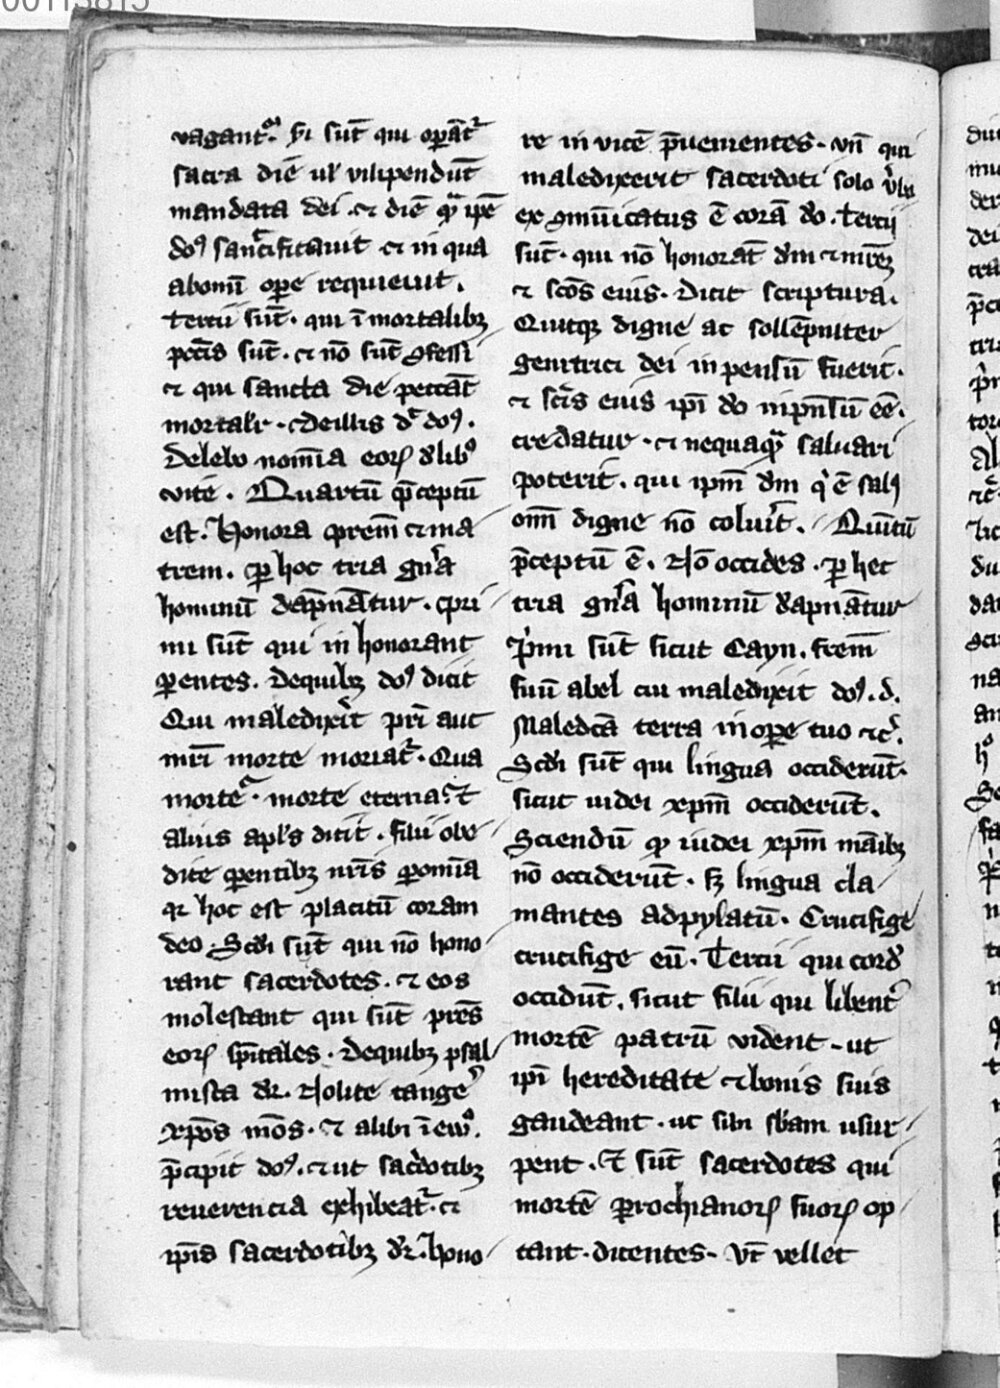 vagant᷑. Hi su̅t qui op̲a̅t᷑
sacra die̅ ul' vilipendu̅t
mandata dei. ⁊ die̅ qua̅ ip̅e
doꝰ sanctificauit ⁊ in qua
ab om̅i op̲e requieuit.
Tercii su̅t. qui i̅ mortalibꝫ
pcc̅is su̅t. ⁊ no̅ su̅t ꝯfessi
⁊ qui sancta die peccat̅
mortalr̕. ⁊ de illis dr̅ doꝰ.
Delebo nomi̅a eoꝝ d̕ libº
uite. Quartu̅ p̅ceptu̅
est. Honora prem̅ ⁊ ma
trem. ꝑ hoc tria gn̅a
hominu̅ dapna̅tur. pri
mi su̅t qui in honorant
ꝑentes. De quibꝫ doꝰ dicit
Qui maledixit᷑ pri̅ aut
mri̅ morte moriat᷑. Qua
morte. morte eterna. ⁊
alius apl's dicit. filii obe
dite ꝑentibꝫ nr̅is ꝑ om̅ia
qr hoc est placitu̅ coram
deo. Scd̕i su̅t qui no̅ hono
rant sacerdotes. ⁊ eos
molestant qui su̅t pres̅
eoꝝ sp̅itales. De quibꝫ psal
mista dr̅. Nolite tange᷑
xp̅os mo̅s. ⁊ alibi i̅ ewº.
p̅cipit doꝰ. ⁊ ut sac̕dotibꝫ
reuerencia exhibeat᷑. ⁊
ip̅is sacerdotibꝫ dr̅. hono
re in vice̅ p̅uenientes. vn̅ qui
maledixerit sacerdoti solo v̕bo
ex ꝯmu̅icatus e̅ cora̅ do̅. Tercii
su̅t. qui no̅ honora̅t dm̅ ⁊ mr̅eꝫ
⁊ sco̅s eius. Dicit scriptura.
Quicqꝫ digne ac solle̅pniter
genitrici dei inpensu̅ fuerit.
⁊ sc̅is eius ip̅i do̅ inpn̅su̅ ee̅.
credatur. ⁊ nequaqua̅ saluari
poterit. qui ipm̅ dm̅ q̕ e̅ salꝰ
om̅i digne no̅ coluit̕. Qui̅tu̅
p̅ceptu̅ e̅. No̅ occides. ꝑ hec
tria gn̅a hominu̅ dapna̅tur
p̕mi su̅t sicut Cayn. frem̅
suu̅ abel cui maledixit doꝰ. d.
Maledc̅a terra in oꝑe tuo ⁊c̕.
Scd̕i su̅t qui lingua occideru̅t.
sicut iudei xpm̅ occideru̅t.
Sciendu̅ ꝙ iudei xpm̅ ma̅ibꝫ
no̅ occideru̅t. sꝫ lingua cla
mantes ad pylatu̅. Crucifige
crucifige eu̅. Tercii qui cord̕
occidu̅t. sicut filii qui libent᷑
morte̅ patru̅ vident. ut
ip̅i hereditate ⁊ bonis suis
gaudeant. ut sibi sb̅am usur
pent. ⁊ su̅t sacerdotes qui
morte̅ ꝑrochianoꝝ suoꝝ op
tant. dicentes. Vt̅ vellet